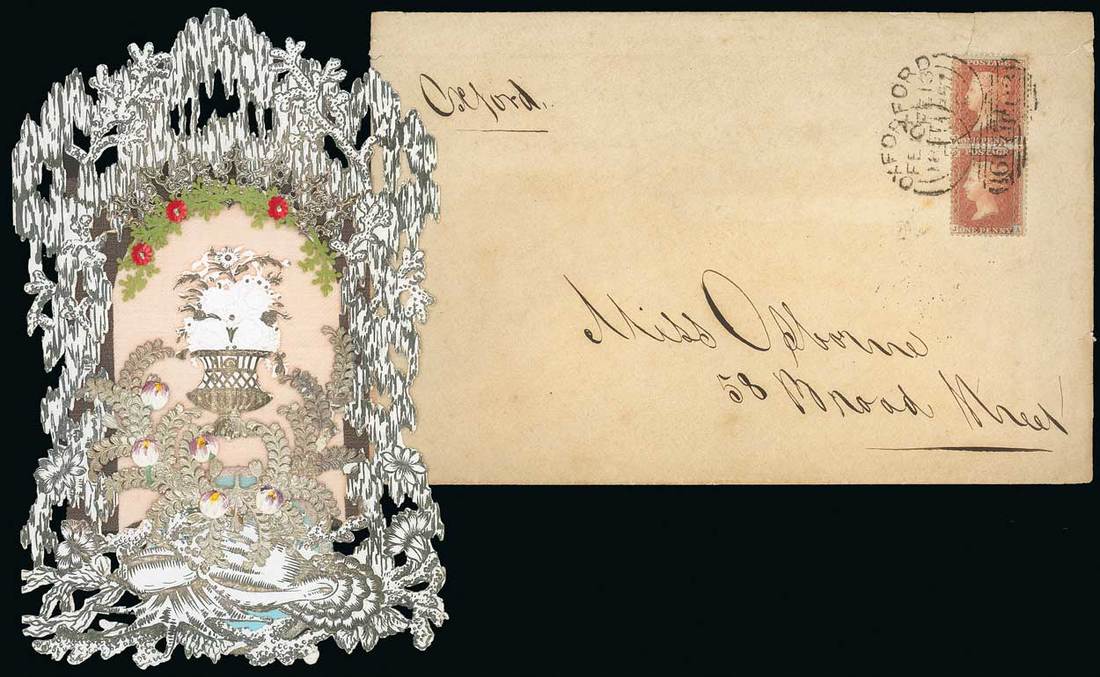 Oxford.
OXFORD
FE 13
POSTAGE
ONE PENNY
Miss Osborne
58 Broad Street